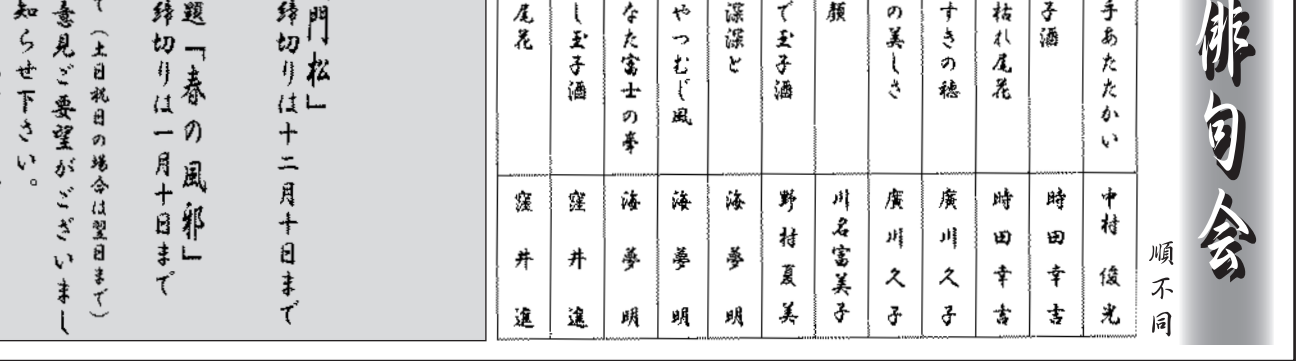 俳句会
順不同
手あたたかい
中村俊光
子酒
時田幸吉
枯れ尾花
時田幸吉
すきの穂
廣川久子
の美しさ
廣川久子
顔
川名富美子
で玉子酒
野村夏美
深深と
海夢明
やつむじ風
海夢明
なた富士の峯
海夢明
し玉子酒
窪井進
尾花
窪井進
門松」
締切りは十二月十日まで
題「春の風邪」
締切りは一月十日まで
て(土日祝日の場合は翌日まで)
意見ご要望がございまし
知らせ下さい。